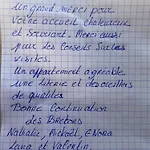 Un grand merci pour
votre accueil chaleureux
et souriant. Merci aussi
pour les conseils sur les
visites.
Un appartement agréable
une literie et des oreillers
de qualités
Bonne continuation
des Bretons
Nathalie, Mikaël, Enora
Lana et Valentin.